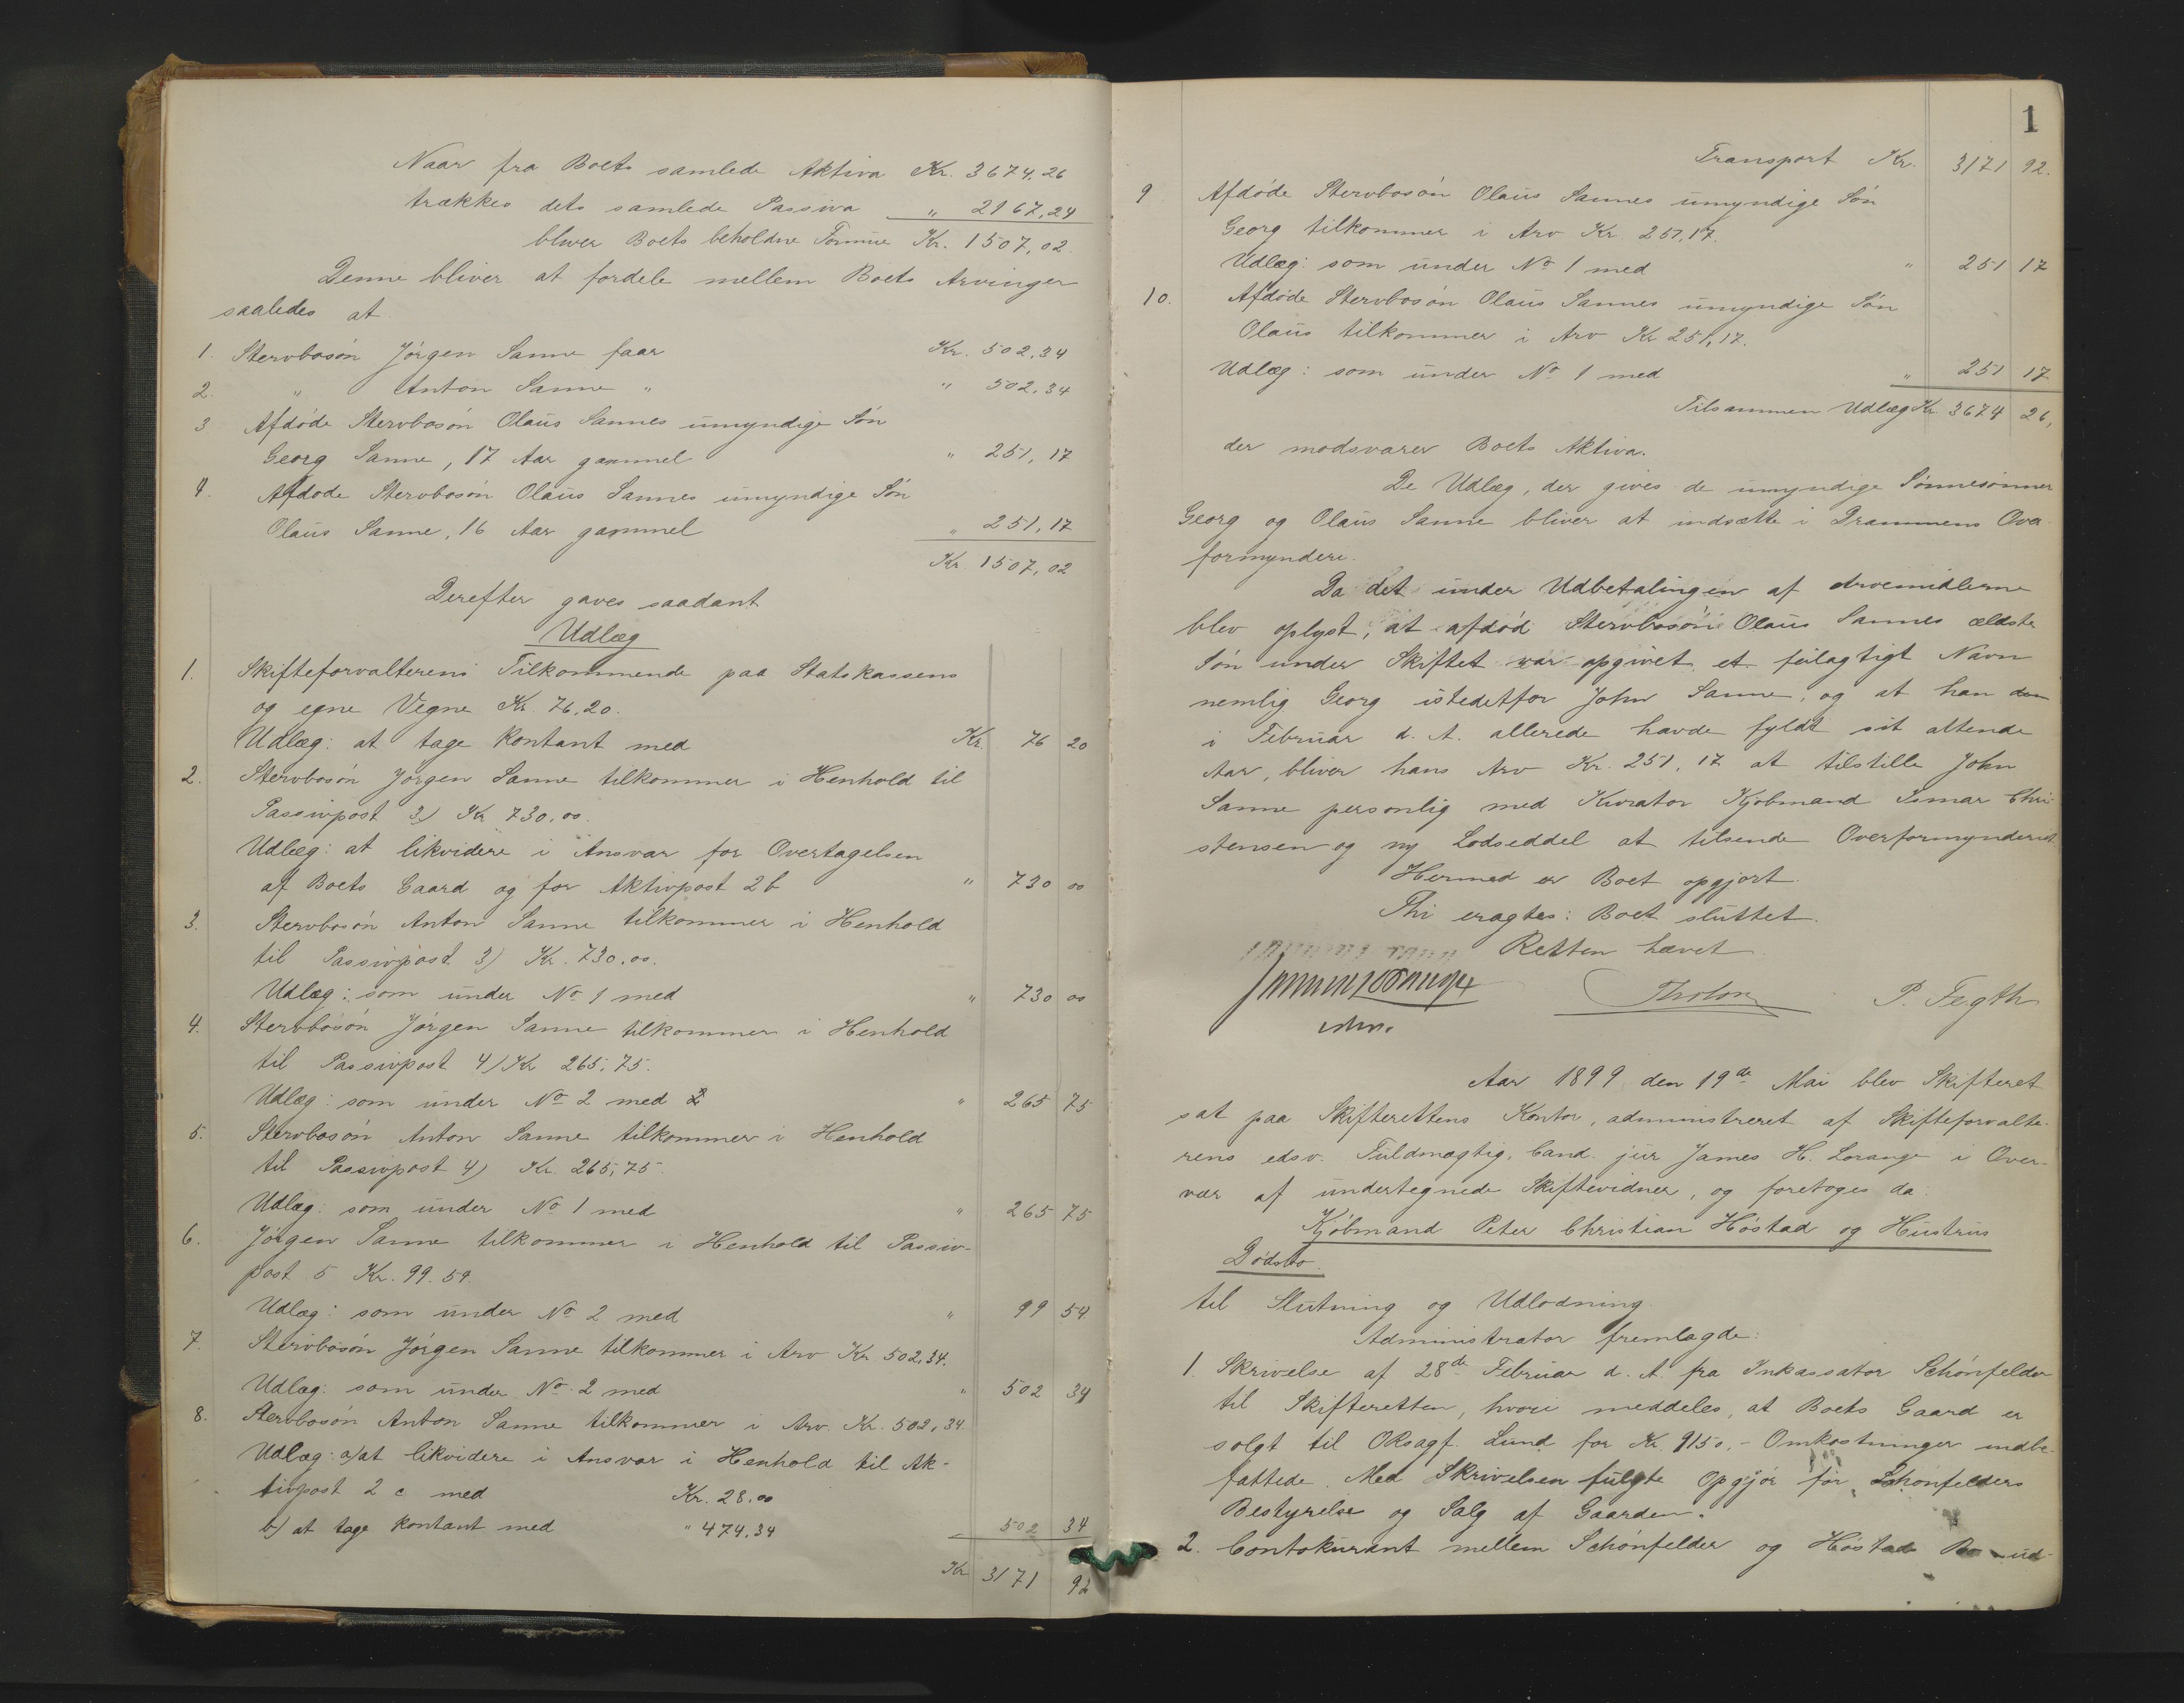 Naar fra Boets samlede Aktiva Kr. 3674,26
trækkes dets samlede Passiva " 2167,24
bliver Boets beholdne Formue Kr. 1507,02.
Denne bliver at fordele mellem Boets Arvinger
saaledes at
1. Stervbosön Jörgen Sanne faar Kr. 502,34
2. " Anton Sanne " " 502,34
3 Afdöde Stervbosön Olaus Sannes umyndige Sön
Georg Sanne, 17 Aar gammel " 251,17
4. Afdöde Stervbosön Olaus Sannes umyndige Sön
Olaus Sanne, 16 Aar gammel " 251,17
Kr. 1507,02
Derefter gaves saadant
Udlæg
1. Skifteforvalterens Tilkommende paa Statskassens
og egne Vegne Kr. 76,20.
Udlæg: at tage kontant med Kr. 76 20
2. Stervbosön Jörgen Sanne tilkommer i Henhold til
Passivpost 3) Kr 730,00.
Udlæg: at likvidere i Ansvar for Overtagelsen
af Boets Gaard og for Aktivpost 2b " 730 00
3. Stervbosön Anton Sanne tilkommer i Henhold
til Passivpost 3) Kr. 730.00.
Udlæg: som under No 1 med " 730 00
4. Stervbosön Jörgen Sanne tilkommer i Henhold
til Passivpost 4) Kr 265,75.
Udlæg: som under No 2 med " 265 75
5. Stervbosön Anton Sanne tilkommer i Henhold
til Passivpost 4) Kr. 265,75.
Udlæg: som under No 1 med " 265 75
6. Jörgen Sanne tilkommer i Henhold til Passiv-
post 5 Kr. 99.54.
Udlæg: som under No 2 med " 99 54
7. Stervbosön Jörgen Sanne tilkommer i Arv Kr. 502,34.
Udlæg: som under No 2 med " 502 34
8. Stervbosön Anton Sanne tilkommer i Arv Kr. 502,34.
Udlæg: a) at likvidere i Ansvar i Henhold til Ak-
tivpost 2 c med Kr. 28.00
b) at tage kontant med " 474.34 502 34
Kr 3171 92
1
Transport Kr. 3171 92.
9 Afdöde Stervbosön Olaus Sannes umyndige Sön
Georg tilkommer i Arv Kr 251,17.
Udlæg: som under No 1 med " 251 17
10. Afdöde Stervbosön Olaus Sannes umyndige Sön
Olaus tilkommer i Arv Kr 251,17.
Udlæg: som under No 1 med " 251 17
Tilsammen Udlæg Kr. 3674 26,
der modsvarer Boets Aktiva.
De Udlæg, der gives de umyndige Sönnesönner
Georg og Olaus Sanne bliver at indsætte i Drammens Over
formynderi.
Da det under Udbetalingen af Arvemidlerne
blev oplyst, at afdöd Stervbosön Olaus Sannes ældste
Sön under Skiftet var opgivet et feilagtigt Navn
nemlig Georg istedetfor John Sanne, og at han
i Februar d. A. allerede havde fyldt sit attende
Aar, bliver hans Arv Kr. 251,17 at tilstille John
Sanne personlig med Kurator Kjöbmand Ismar Chri-
stensen og ny Lodseddel at tilsende Overformynderiet.
Hermed er Boet opgjort.
Thi eragtes: Boet sluttet.
Retten hævet.
P. Fegth
Aar 1899 den 19de Mai blev Skifteret
sat paa Skifterettens Kontor, administreret af Skifteforvalte-
rens edsv. Fuldmægtig, Cand. jur James H. Lorange i Over-
vær af undertegnede Skiftevidner, og foretoges da:
Kjöbmand Peter Christian Höstad og Hustrus
Dödsbo.
til Slutning og Udlodning.
Administrator fremlagde:
1. Skrivelse af 28de Februar d. A. fra Inkassator Schönfelder
til Skifteretten, hvori meddeles, at Boets Gaard er
solgt til ORsagf. Lund for Kr. 9150,- Omkostninger indbe-
fattede. Med Skrivelsen fulgte Opgjör for Schönfelders
Bestyrelse og Salg af Gaarden.
2. Contokurant mellem Schönfelder og Höstad Bo ud-